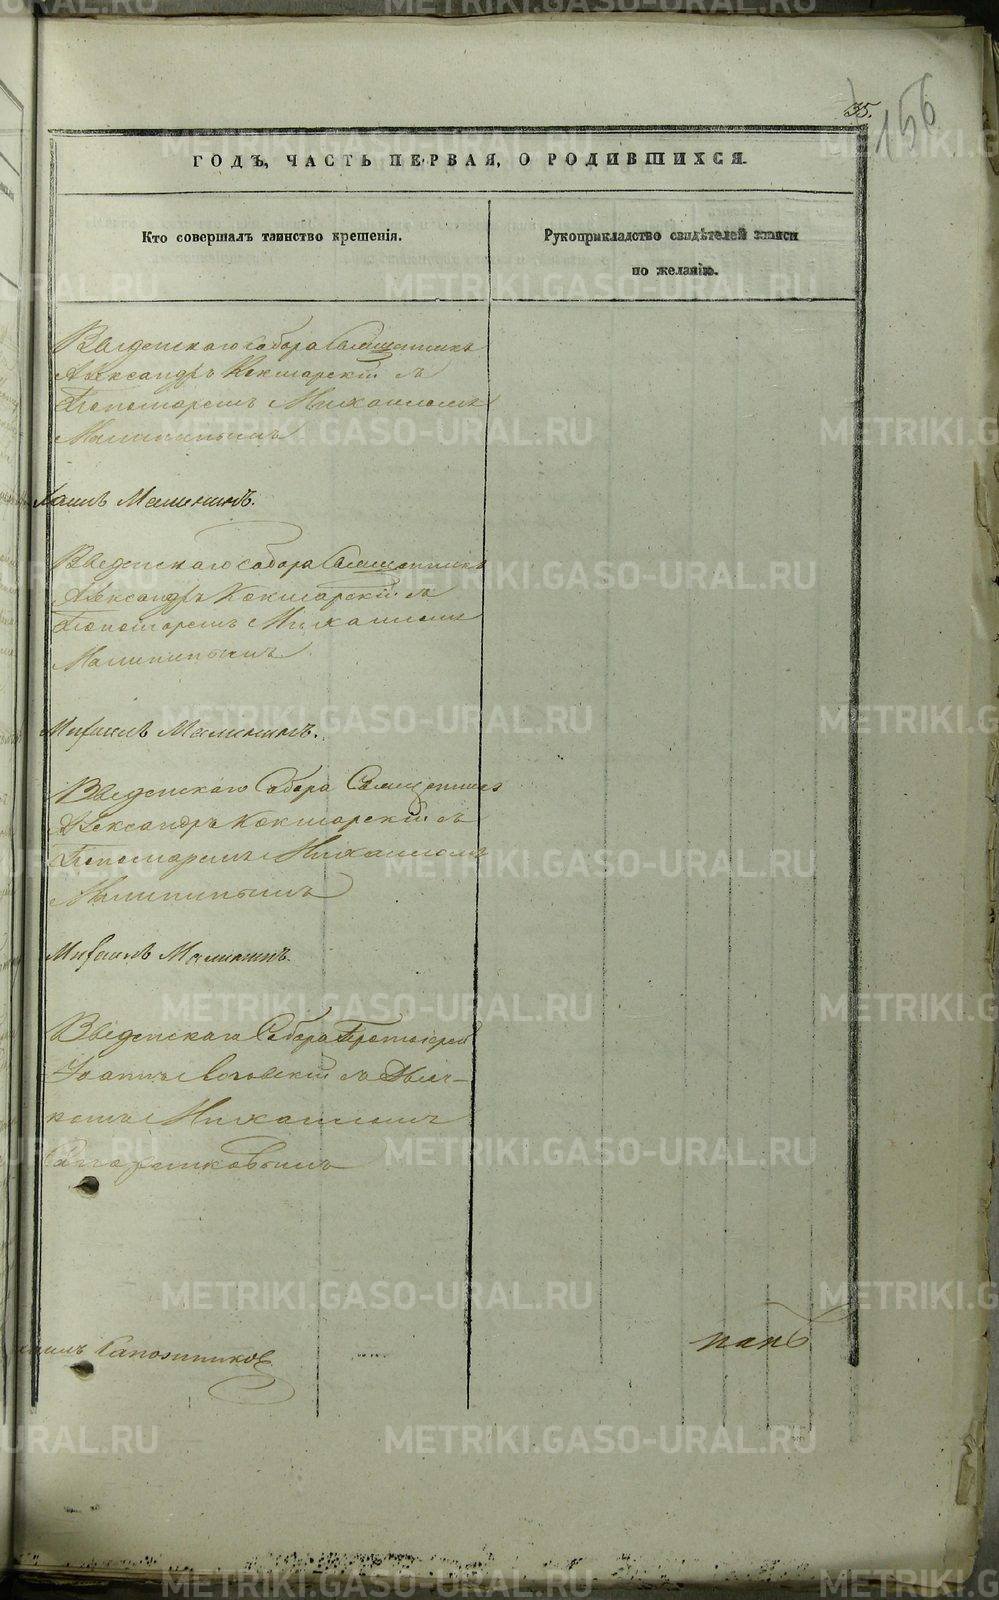 35.
156
ГОДЪ, ЧАСТЬ ПЕРВАЯ, О РОДИВШИХСЯ.
Кто совершалъ таинство крещенія.
Рукоприкладство свидѣтелей записи
по желанію.
Введенскаго собора Священникъ
Александръ Кокшарскій съ
Пономаремъ Михаиломъ
Малининымъ
Малининъ.
Введенскаго собора Священникъ
Александръ Кокшарскій съ
Пономаремъ Михаиломъ
Малининымъ
Михаилъ Малининъ.
Введенскаго Собора Священникъ
Александръ Кокшарскій съ
Пономаремъ Михаиломъ
Малининымъ
Михаилъ Малининъ.
Введенскаго Собора Протоіерей
Іоаннъ съ Дьяч-
комъ Михаиломъ
Сапожниковымъ
Сапожниковъ
METRIKI.GASO-URAL.RU